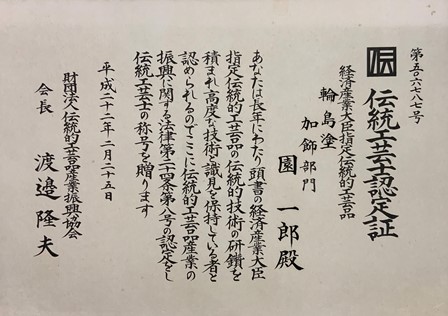 第五〇六七八七号
伝
伝統工芸士認定証
経済産業大臣指定伝統的工芸品
輪島塗
加飾部門
園一郎殿
あなたは長年にわたり頭書の経済産業大臣
指定伝統的工芸品の伝統的技術の研鑽を
積まれ高度な技術と識見を保持している者と
認められるのでここに伝統的工芸品産業の
振興に関する法律第二十四条第八号の認定をし
伝統工芸士の称号を贈ります
平成二十二年二月二十五日
財団法人伝統的工芸品産業振興協会
会長 渡邉隆夫